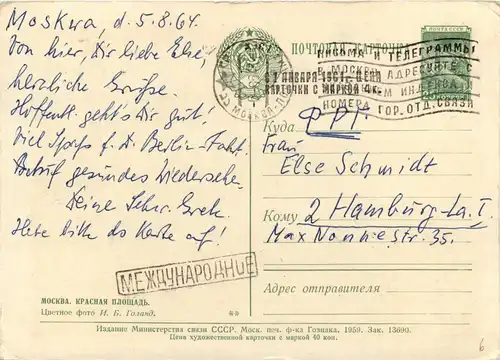 Moskwa, d. 5.8.64.
Von hier, Dir liebe Else,
herzliche Grüße.
Hoffentl. geht's Dir gut!
Viel Spaß f. d. Berlin-Faht.
Auf gesundes Wiedersehen
Deine
Hebe bitte ds Karte auf!
МЕЖДУНАРОДНОЕ
МОСКВА. КРАСНАЯ ПЛОЩАДЬ.
Цветное фото И. Б. Голанд.
ПОЧТОВАЯ КАРТОЧКА
ПИСЬМА И ТЕЛЕГРАММЫ
В МОСКВУ АДРЕСУЙТЕ
С 1 ЯНВАРЯ 1961 г. ЦЕНА
КАРТОЧКИ С МАРКОЙ 4 к.
НОМЕРА ГОР. ОТД. СВЯЗИ
Куда
Frau
Else Schmidt
Кому 2 Hamburg-La. I.
Max Nonne Str. 35.
Адрес отправителя
Издание Министерства связи СССР. Моск. печ. ф-ка Гознака. 1959. Зак. 13600.
Цена художественной карточки с маркой 40 коп.
6